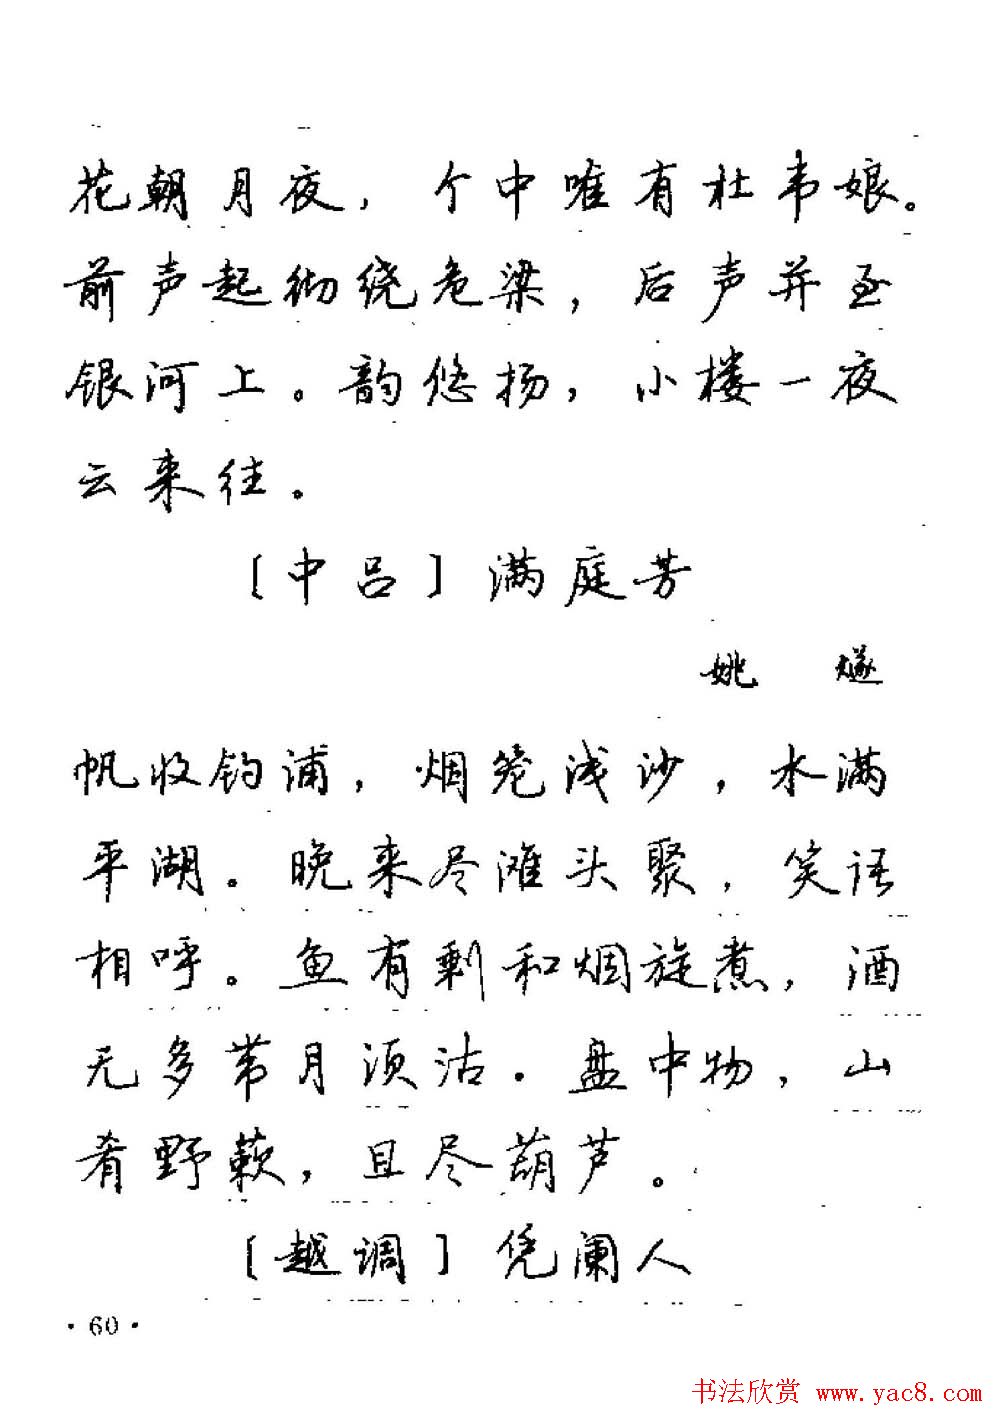 花朝月夜，个中唯有杜韦娘。
前声起彻绕危梁，后声并至
银河上。韵悠扬，小楼一夜
云来往。
［中吕］满庭芳
姚 燧
帆收钓浦，烟笼浅沙，水满
平湖。晚来尽滩头聚，笑语
相呼。鱼有剩和烟旋煮，酒
无多带月须沽。盘中物，山
肴野蔌，且尽葫芦。
［越调］凭阑人
·60·
书法欣赏 www.yac8.com